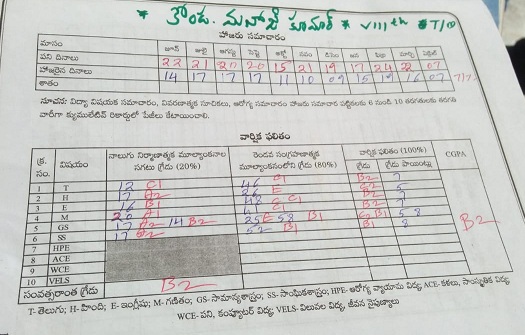 * కొండ. మనోజ్ కుమార్ * VIIIth T/M
హాజరు సమాచారం
మాసం జూన్ జులై ఆగస్టు సెప్టె అక్టో నవం డిసెం జన ఫిబ్ర మార్చి ఏప్రిల్
పని దినాలు 22 21 20 20 15 21 19 17 24 22 07
హాజరైన దినాలు 14 17 17 17 11 10 09 15 19 16 07
శాతం
సూచన: విద్యా విషయక సమాచారం, వివరణాత్మక సూచికలు, ఆరోగ్య సమాచారం హాజరు సమాచార పట్టికలకు 6 నుండి 10 తరగతులకు తరగతి
వారీగా క్యుములేటివ్ రికార్డులో పేజీలు కేటాయించాలి.
వార్షిక ఫలితం
క్ర. సం. విషయం నాలుగు నిర్మాణాత్మక మూల్యాంకనాల సగటు గ్రేడు (20%) రెండవ సంగ్రహణాత్మక మూల్యాంకనంలోని గ్రేడు (80%) వార్షిక ఫలితం (100%) గ్రేడు గ్రేడు పాయింట్లు CGPA
1 T 12 C1 46 C1 B2 7
2 H 17 A2
3 E 16 B1
4 M 20 A1
5 GS 17 A2 14 B2 25 E 58 B1 B2
6 SS 17 A2 52 B1 B1 8
7 HPE
8 ACE
9 WCE
10 VELS
సంవత్సరాంత గ్రేడు B2
T- తెలుగు; H- హింది; E- ఇంగ్లీషు; M- గణితం; GS- సామాన్యశాస్త్రం; SS- సాంఘికశాస్త్రం; HPE- ఆరోగ్య వ్యాయామ విద్య; ACE- కళలు, సాంస్కృతిక విద్య;
WCE- పని, కంప్యూటర్ విద్య; VELS- విలువల విద్య, జీవన నైపుణ్యాలు